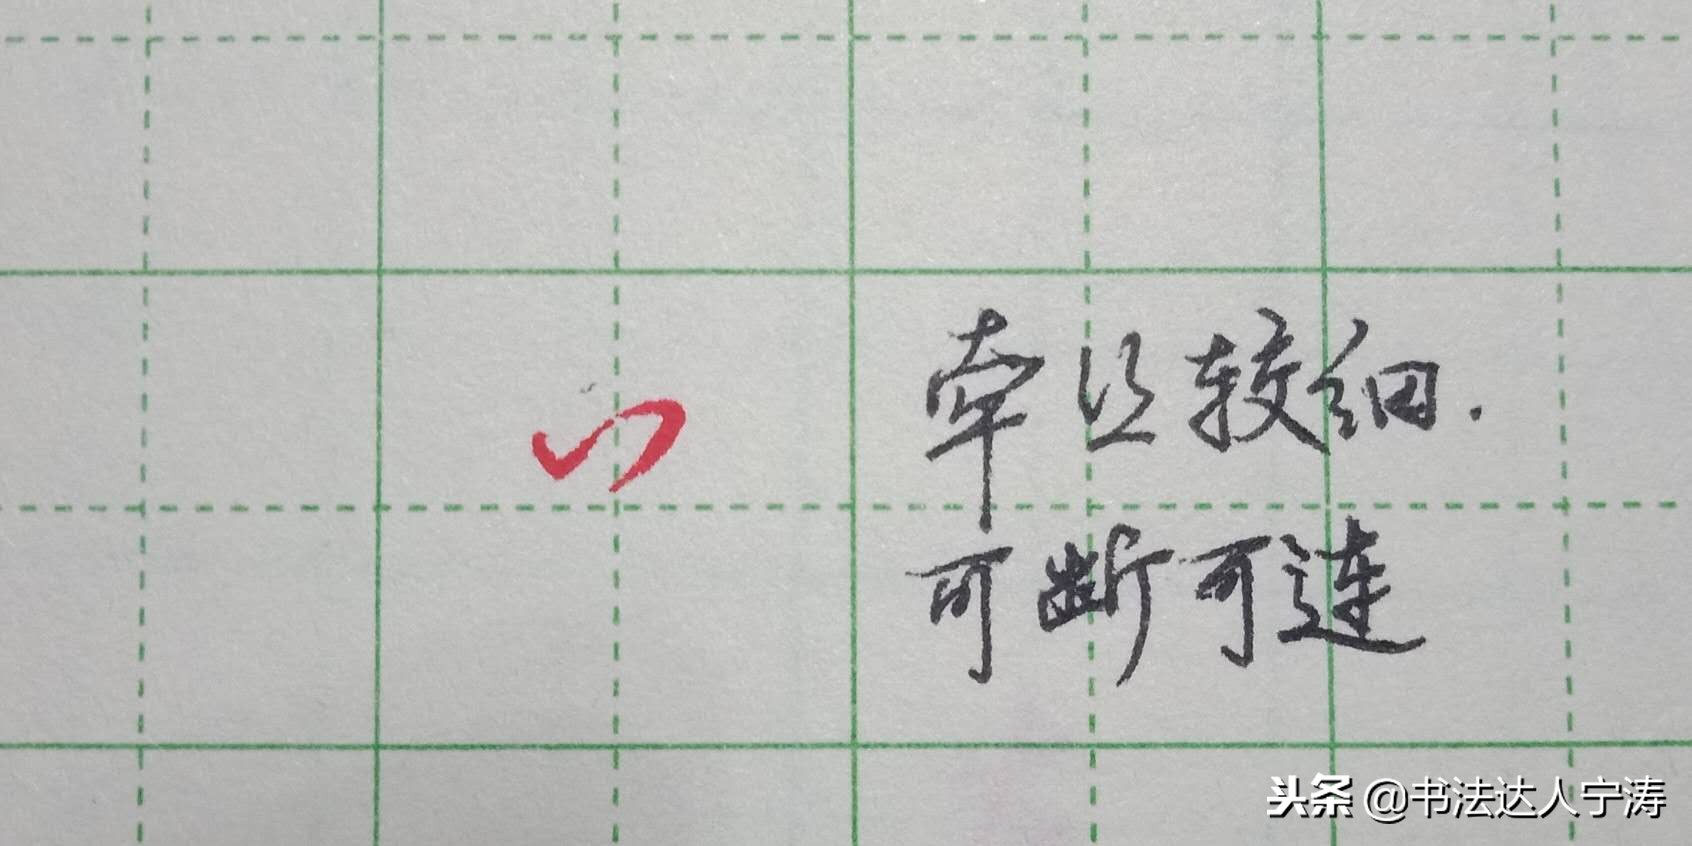 牵丝较细.
可断可连
头条 @书法达人宁涛